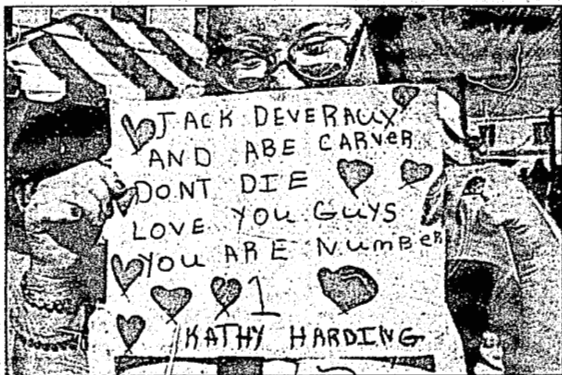 JACK DEVERAUX
AND ABE CARVER
DONT DIE
LOVE YOU GUYS
YOU ARE NUMBER
1
KATHY HARDING